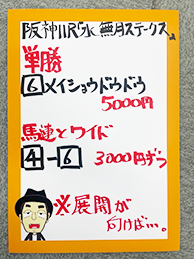 阪神11R「水無月ステークス」
単勝
6 メイショウドウドウ
5000円
馬連とワイド
4-6 3000円ずつ
※展開が
向けば…。